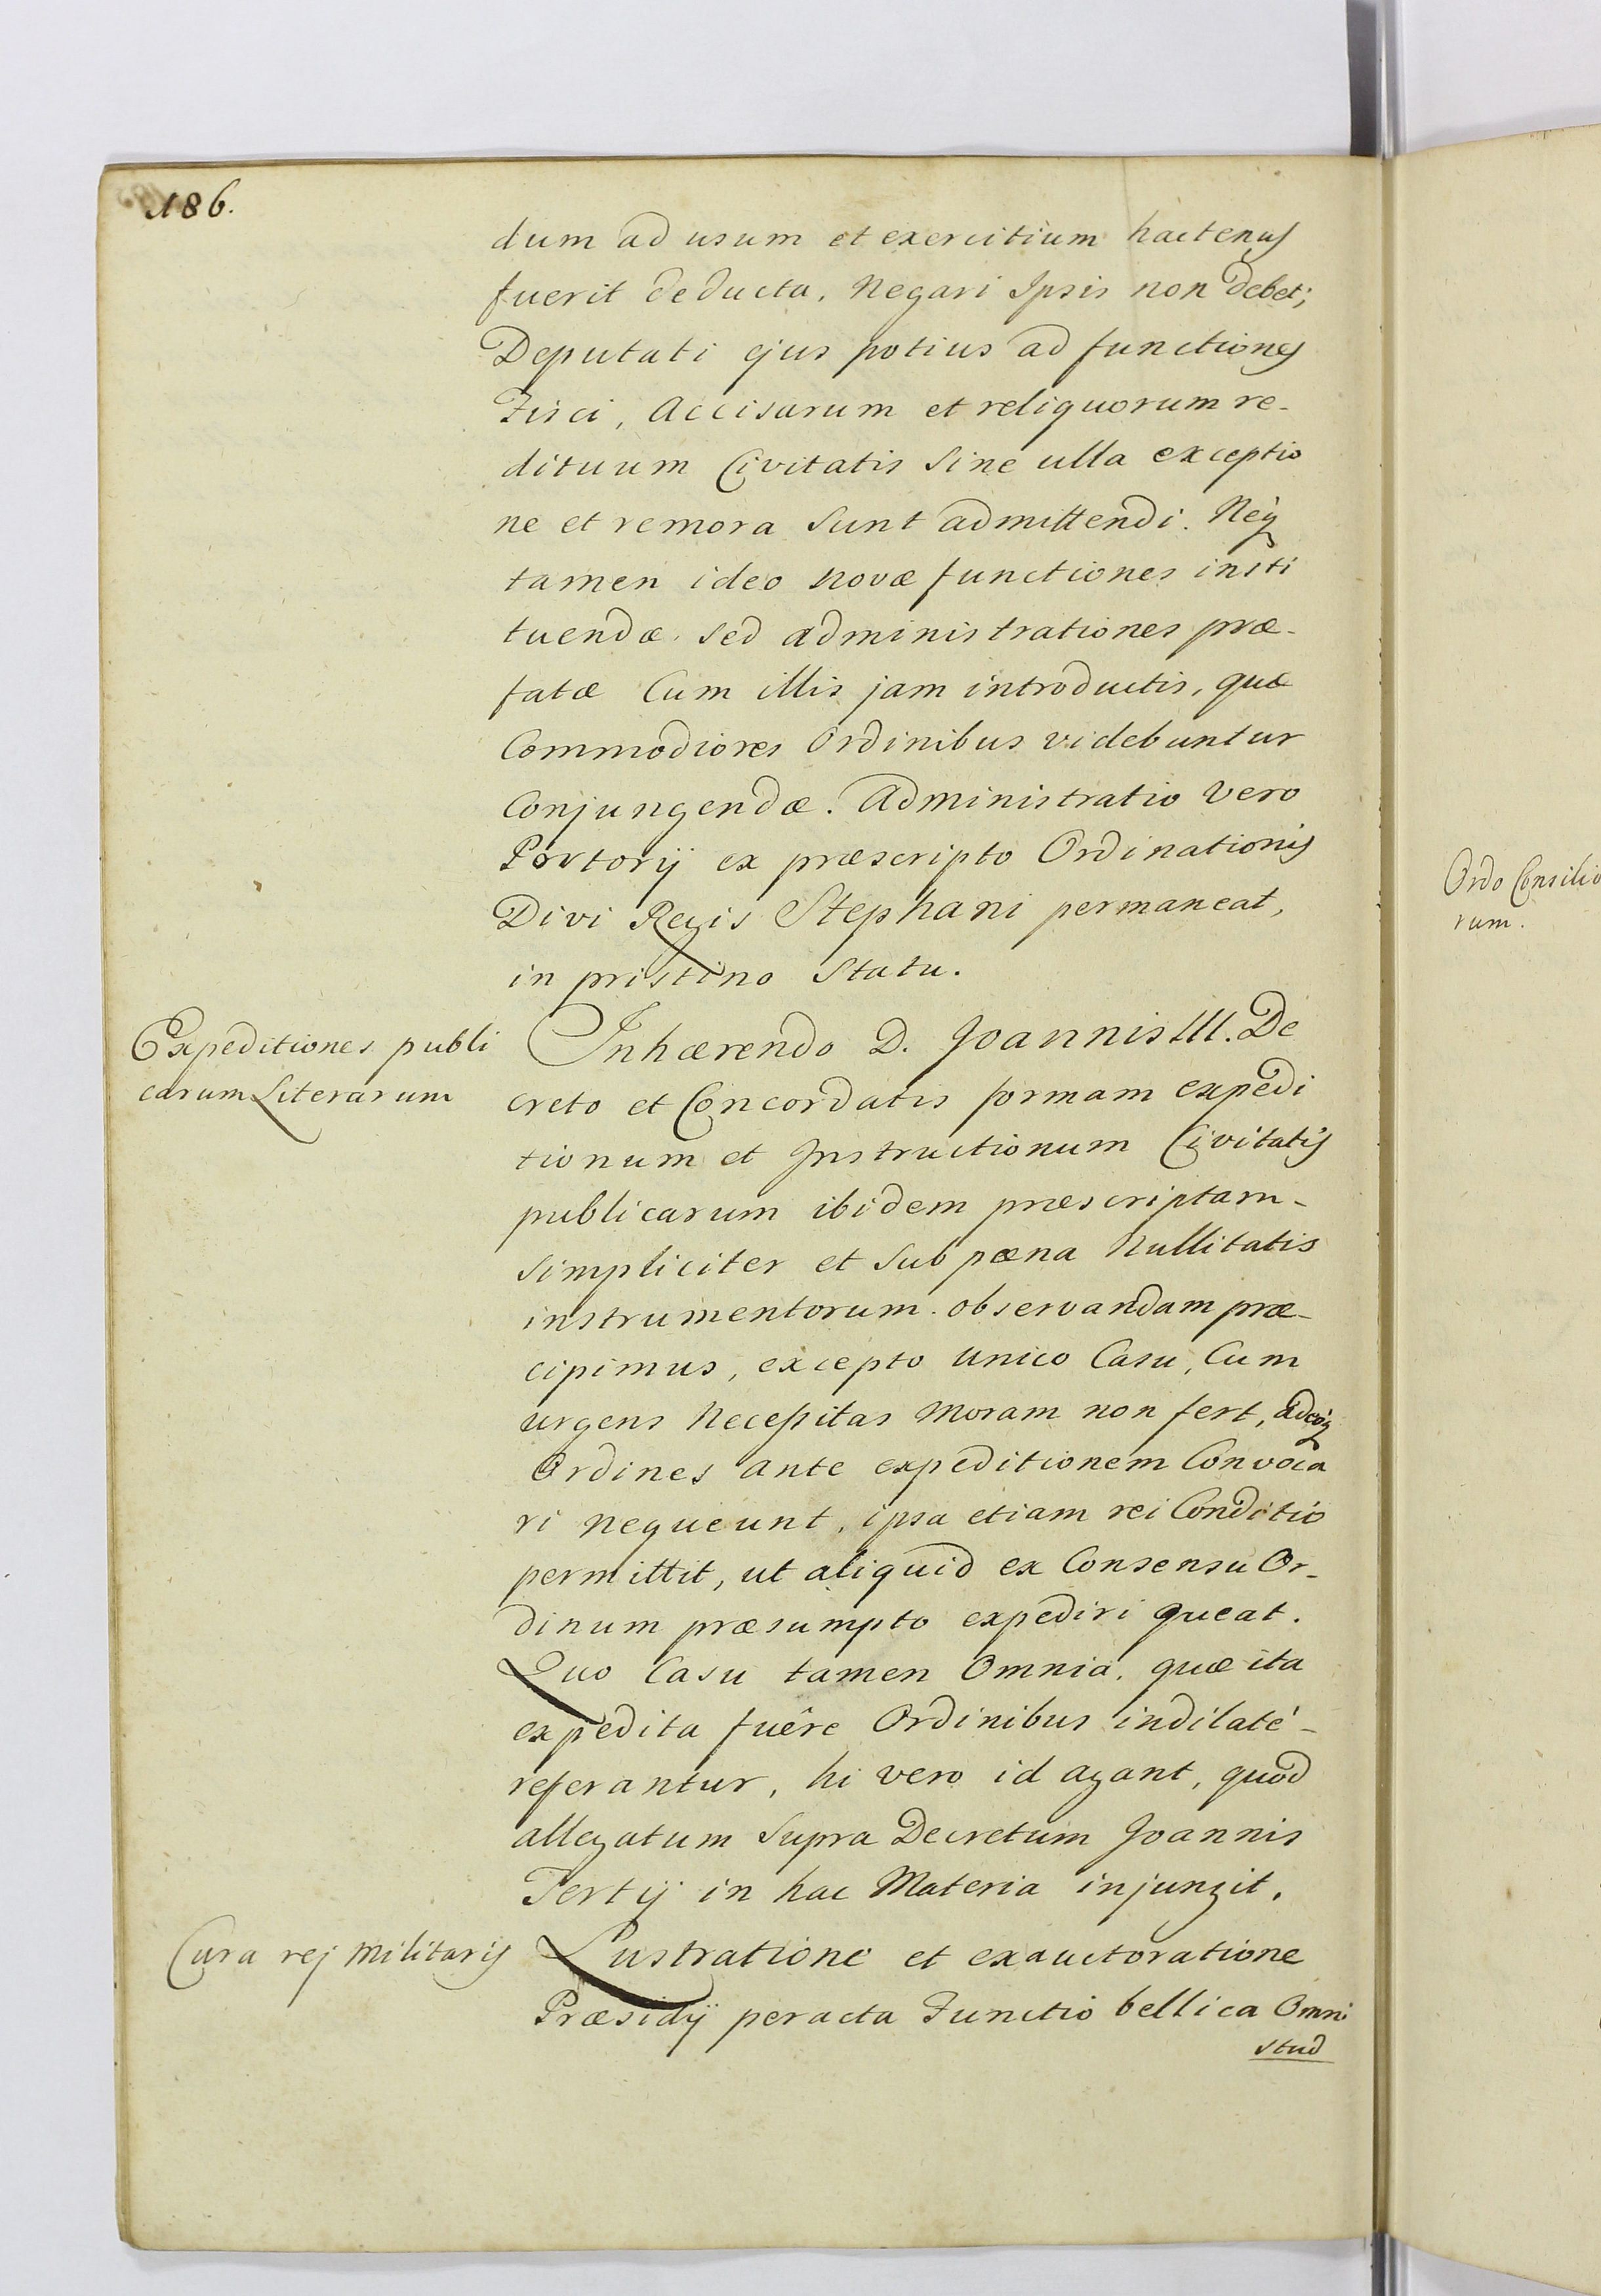 186.
dum ad usum et exercitium hactenus
fuerit deducta, negari Ipsis non debet;
Deputati ejus potius ad functiones
Fisci, Accisarum et reliquorum re-
dituum Civitatis sine ulla exceptio
ne et remora sunt admittendi. Neq
tamen ideo novæ functiones insti
tuendæ, sed administrationes præ-
fatæ Cum illis jam introductis, quæ
Commodiores Ordinibus videbuntur
Conjungendæ. Administratio vero
Portorij ex præscripto Ordinationis
Divi Regis Stephani permaneat,
in pristino Statu.
Expeditiones publi
carum Literarum
Inhærendo D. Joannis III. De
creto et Concordatis formam expedi
tionum et Instructionum Civitatis
publicarum ibidem præscriptam-
simpliciter et sub pæna Nullitatis
instrumentorum observandam præ-
cipimus, excepto unico Casu, Cum
urgens Necessitas Moram non fert, adeoq
Ordines ante expeditionem Convoca
ri nequeunt, ipsa etiam rei Conditio
permittit, ut aliquid ex Consensu Or-
dinum præsumpto expediri queat.
Quo Casu tamen Omnia, quæ ita
expedita fuêre Ordinibus indilaté-
referantur, hi vero id agant, quod
allegatum Supra Decretum Joannis
Tertij in hac Materia injungit.
Cura rej Militaris
Lustratione et exauctoratione
Præsidij peracta Functio bellica Omni
stud
Ordo Consilio
rum.